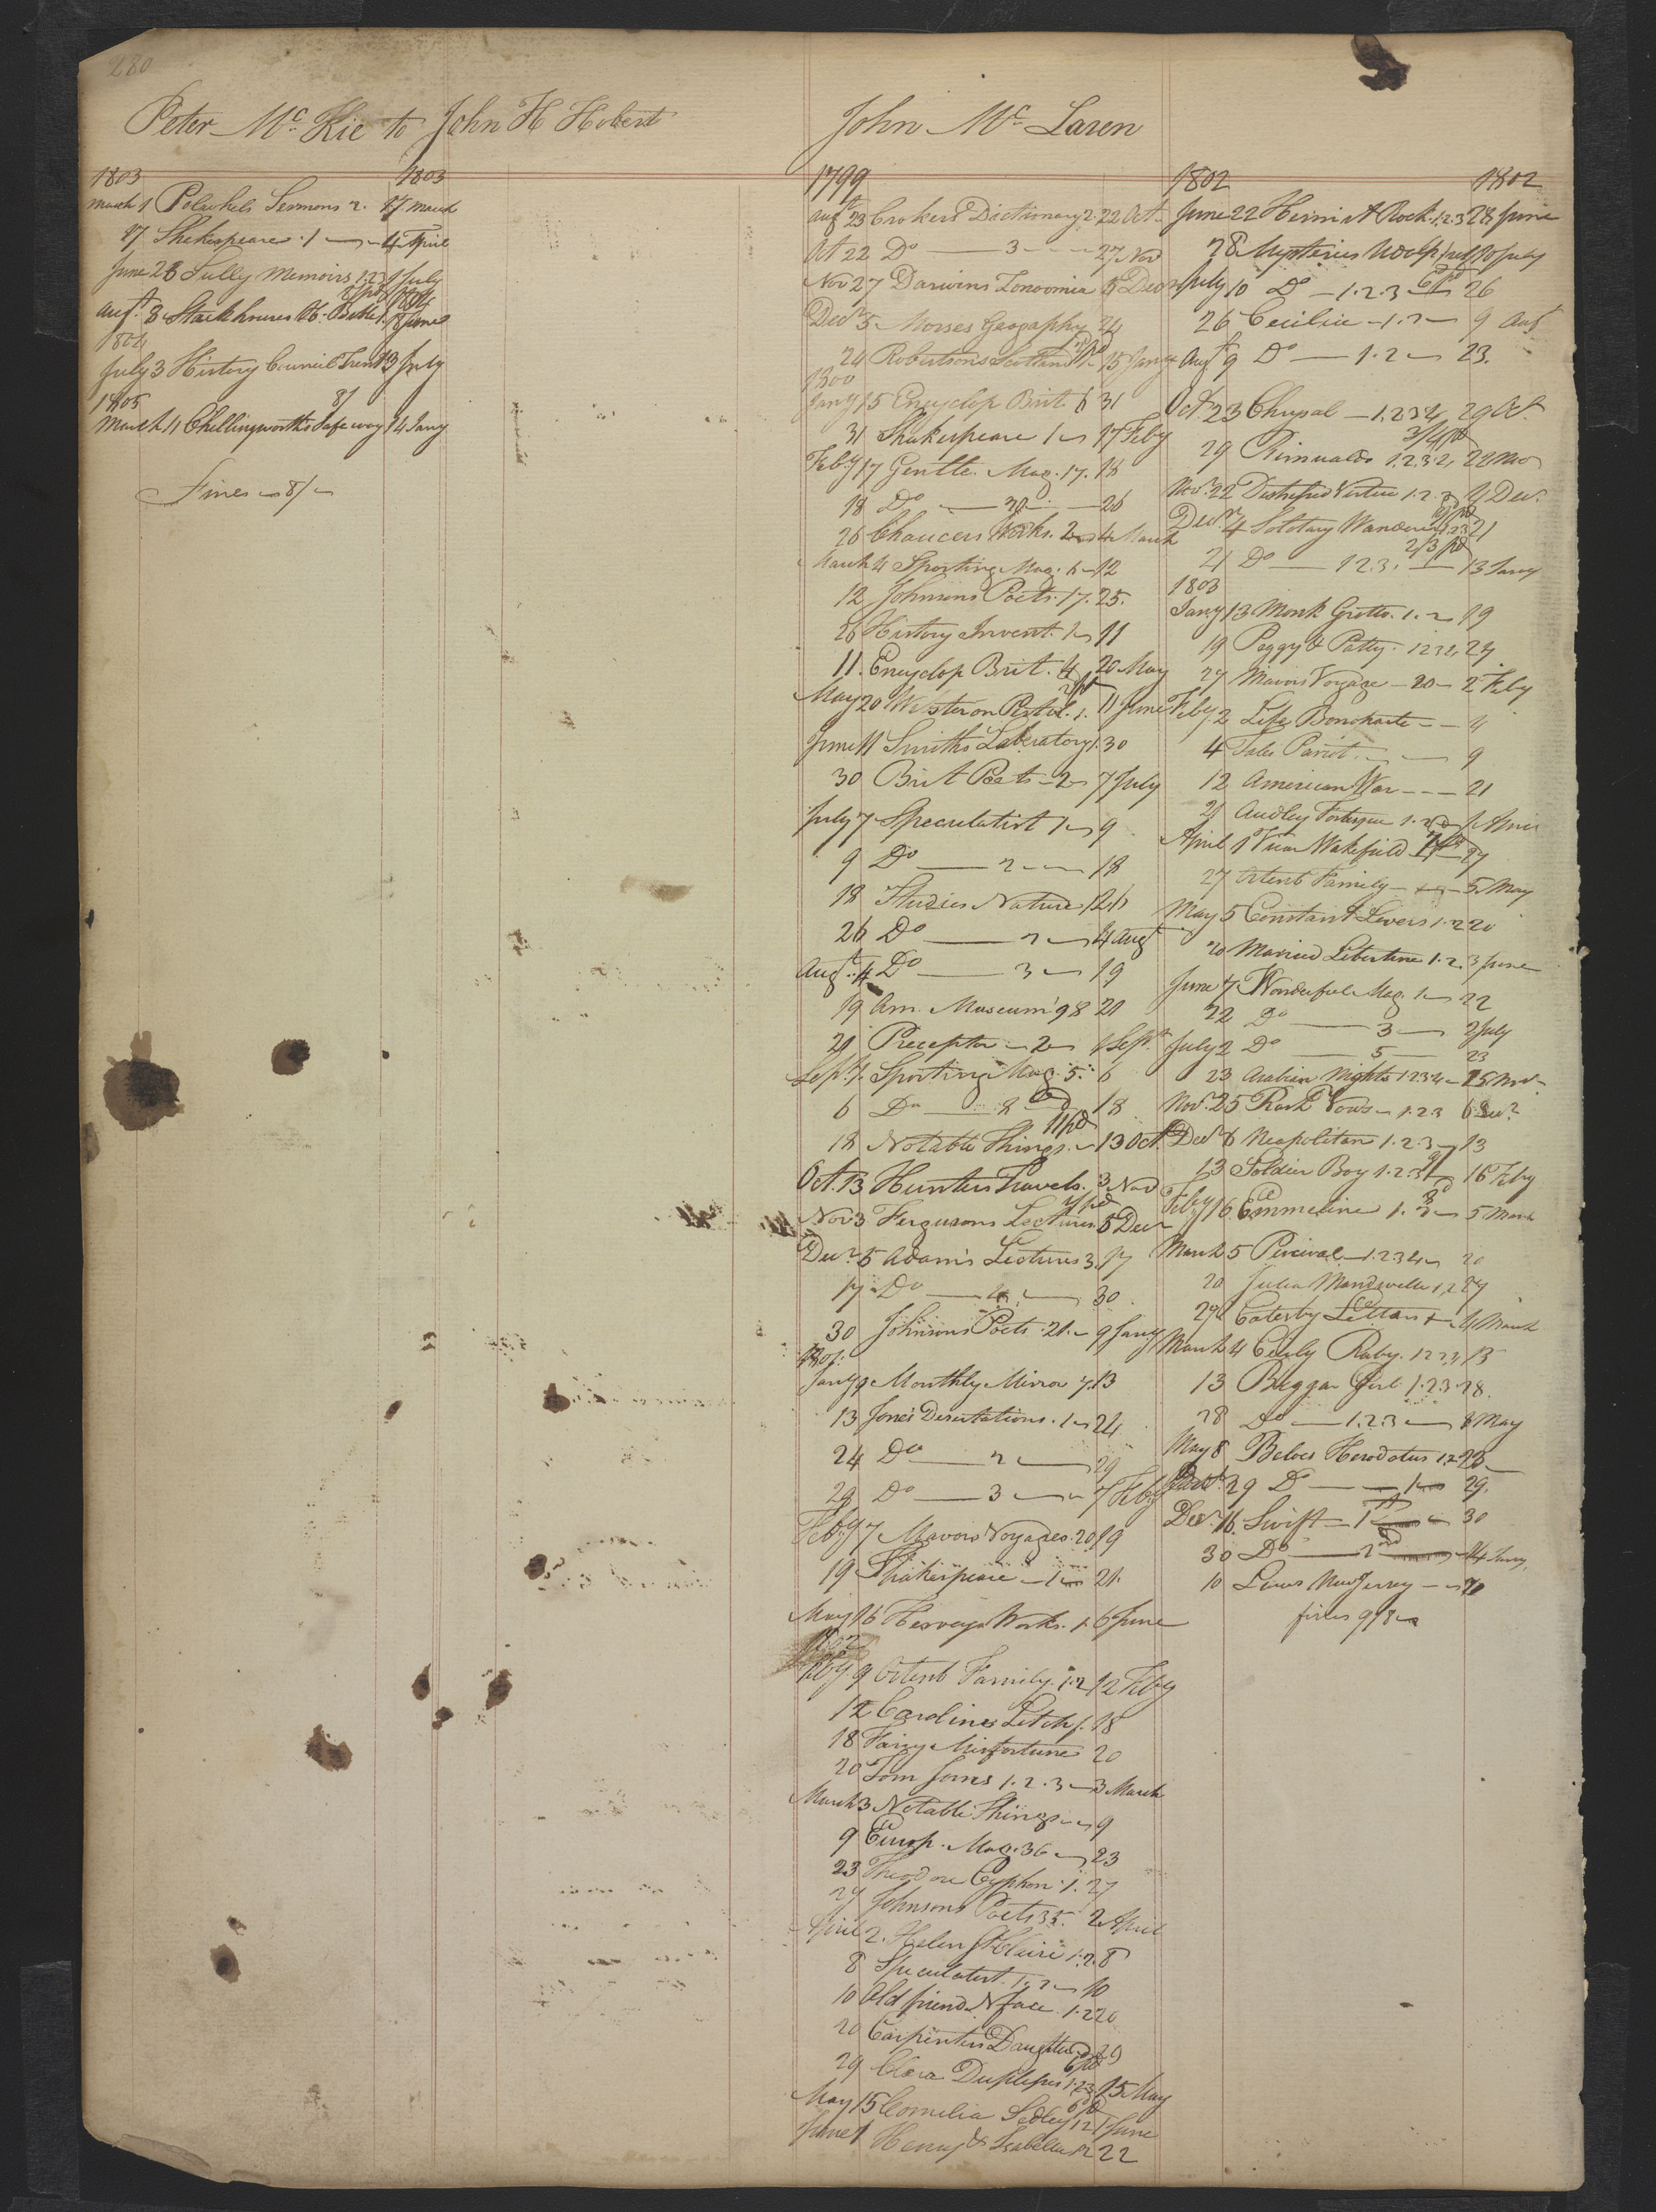 280
Peter Mc Kie to John H Hobert
1803 1803
March 1 Polwhels Sermons 2. 17 March
17 Shakespeare 1 4 April
June 28 Sully Memoirs 1.2.3 July
1804
Augt. 8 Stackhouses H. Bible 1. 8 June
1804
July 3 History Council Trent 13 July
8/
1805
March 11 Chellingworths Safe way 14 Jany
Fines 8/
John Mc Laren
1799
Augt 23 Crokers Dictionary 2 22 Oct
Oct 22 Do 3 27 Nov
Nov 27 Darwins Zonoomia 5 Decr
Decr 5 Morses Geography 24
24 Robertsons Scotland 1 15 Jany
1800
Jany 15 Encyclop Brit. 6 31
31 Shakespeare 1 17 Feby
Feby 17 Gentle. Mag. 17. 18
18 Do 26
26 Chaucers Works. 2 4 March
March 4 Sporting Mag. 6 12
12 Johnsons Poets. 17. 25.
26 History Invent. 1 11
11. Encyclop Brit. 4 20 May
May 20 Wisteron Pistol. 1. 11 June
June 11 Smiths Laboratory 1. 30
30 Brit Poets 2 7 July
July 7 Speculatist 1 9
9 Do 2 18
18 Studies Nature 1 26
26 Do 2 4 Augt
Augt. 4 Do 3 19
19 Am. Museum 98 21
21 Preceptor 2 1 Sept.
Sept. 1. Sporting Mag. 5. 6
6 Do 8 18
11/pd
18 Notable Things. 13 Oct.
Oct. 13 Hunters Travels. 3 Nov
Nov 3 Fergusons Lectures 5 Decr
Decr. 5 Adams Lectures 3. 17
17 Do 4 30
30 Johnsons Poets. 21. 9 Jany
1801.
Jany 9 Monthly Mirror 7. 13
13 Jones Desertations. 1 24
24 Do 2 29
29 Do 3 7 Feby
Feby 7 Mavors Voyages. 20 19
19 Shakerpeare 1 21.
May 16 Herveys Works. 1. 6 June
1802
Feby 9 Ortenb Family. 1.2 12 Feby
12 Carolines Litch. 1. 18
18 Fairy Misfortunes 20
20 Tom Jones 1.2.3 3 March
March 3 Notable Things 9
9 Europ. Mag. 36 23
23 Theodore Cyphon. 1. 27
27 Johnsons Poets 35. 2 April
April 2. Helen St Claire 1.2. 8
8 Speculatist. 1.2 10
10 Old friend N face. 1.2 20
20 Carpenters Daughter 29
29 Clara Duplepis 1.2.3 15 May
May 15 Cornelia Sedley 1.2 1 June
June 1 Henry & Isabella 1.2 22
1802 1802
June 22 Hermit Rock. 1.2.3 28 June
28 Mysteries Udolp 1 10 July
July 10 Do 1.2.3 26
26 Cecilia 1.2 9 Augt
Augt 9 Do 1.2 23.
Oct. 23 Chrysal 1.2 3 4 29 Oct.
3/4 pd
29 Rimualdo 1.2.3.4. 22 Nov
Nov. 22 Distressed Virtue 1.2.3 4 Decr.
Decr. 4 Solotary Wanderer 1.2.3 21
2/3 pd
21 Do 1.2.3. 13 Jany
1803
Jany 13 Monk Grotto. 1.2 19
19 Peggy & Patty. 1 2 3 4, 27
27 Mavors Voyage 20 2 Feby
Feby 2 Life Bonoharte 4
4 Tales Parrot 9
12 American War 21
21 Audley Fortesque 1.2 1 April
April 1 Vicar Wakefield 27
27 Ortenb Family 5 May
May 5 Constant Lovers 1.2 20
20 Married Libertine 1.2. 3 June
June 7 Wonderful Mag. 1 22
22 Do 3 2 July
July 2 Do 5 23
23 Arabian Nights 1.2 3 4 25 Nov
Nov. 25 Rash Vows 1.2.3 6 Decr
Decr 6 Neapolitan 1.2.3 13
13 Soldier Boy 1.2.3 16 Feby
Feby 16. Emmeline 1. 3 5 March
March 5 Percival 1.2 3 4 20
20 Julia Mandevelle 1,2 27
29 Catesby Letters 4 March
March 4 Cecily Raby. 1 2 3 4 13
13 Beggar Girl. 1.2.3 28.
28 Do 1.2.3 8 May
May 8 Beloes Herodotus 1.2 23
29 Do 1 29.
Decr. 16. Swift 1 30
30 Do 2 14 Jany.
10 Laws New Jersey
fines 9/8